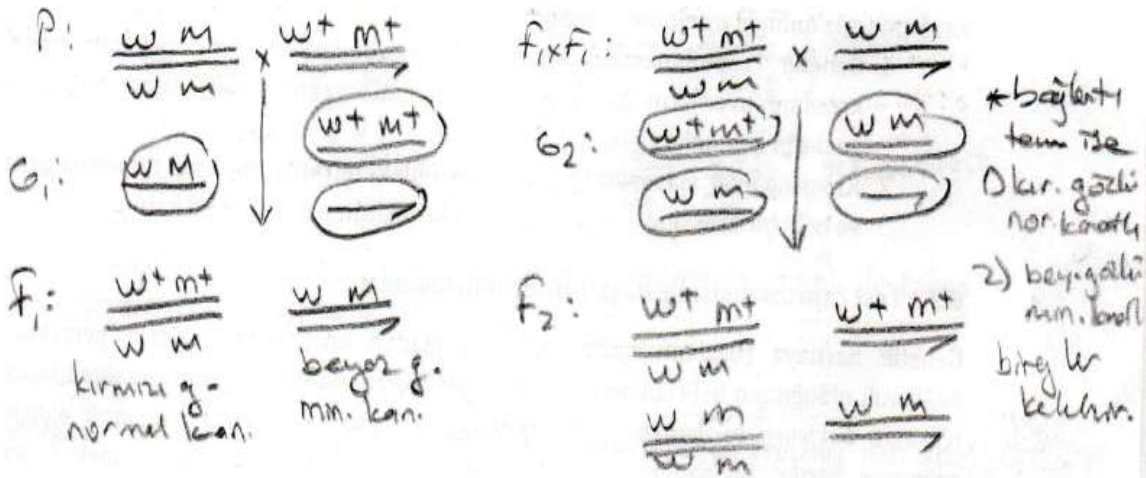 P: w m / w m x w+ m+
G1: w m w+ m+
F1: w+ m+ / w m w m
kırmızı g. beyaz g.
normal kan. min. kan.
F1xF1: w+ m+ / w m x w m
G2: w+ m+ w m
w m
F2: w+ m+ / w m w+ m+
w m / w m w m
* bağlantı
tam ise
1) kır. gözlü
nor. kanatlı
2) bey. gözlü
min. kanatlı